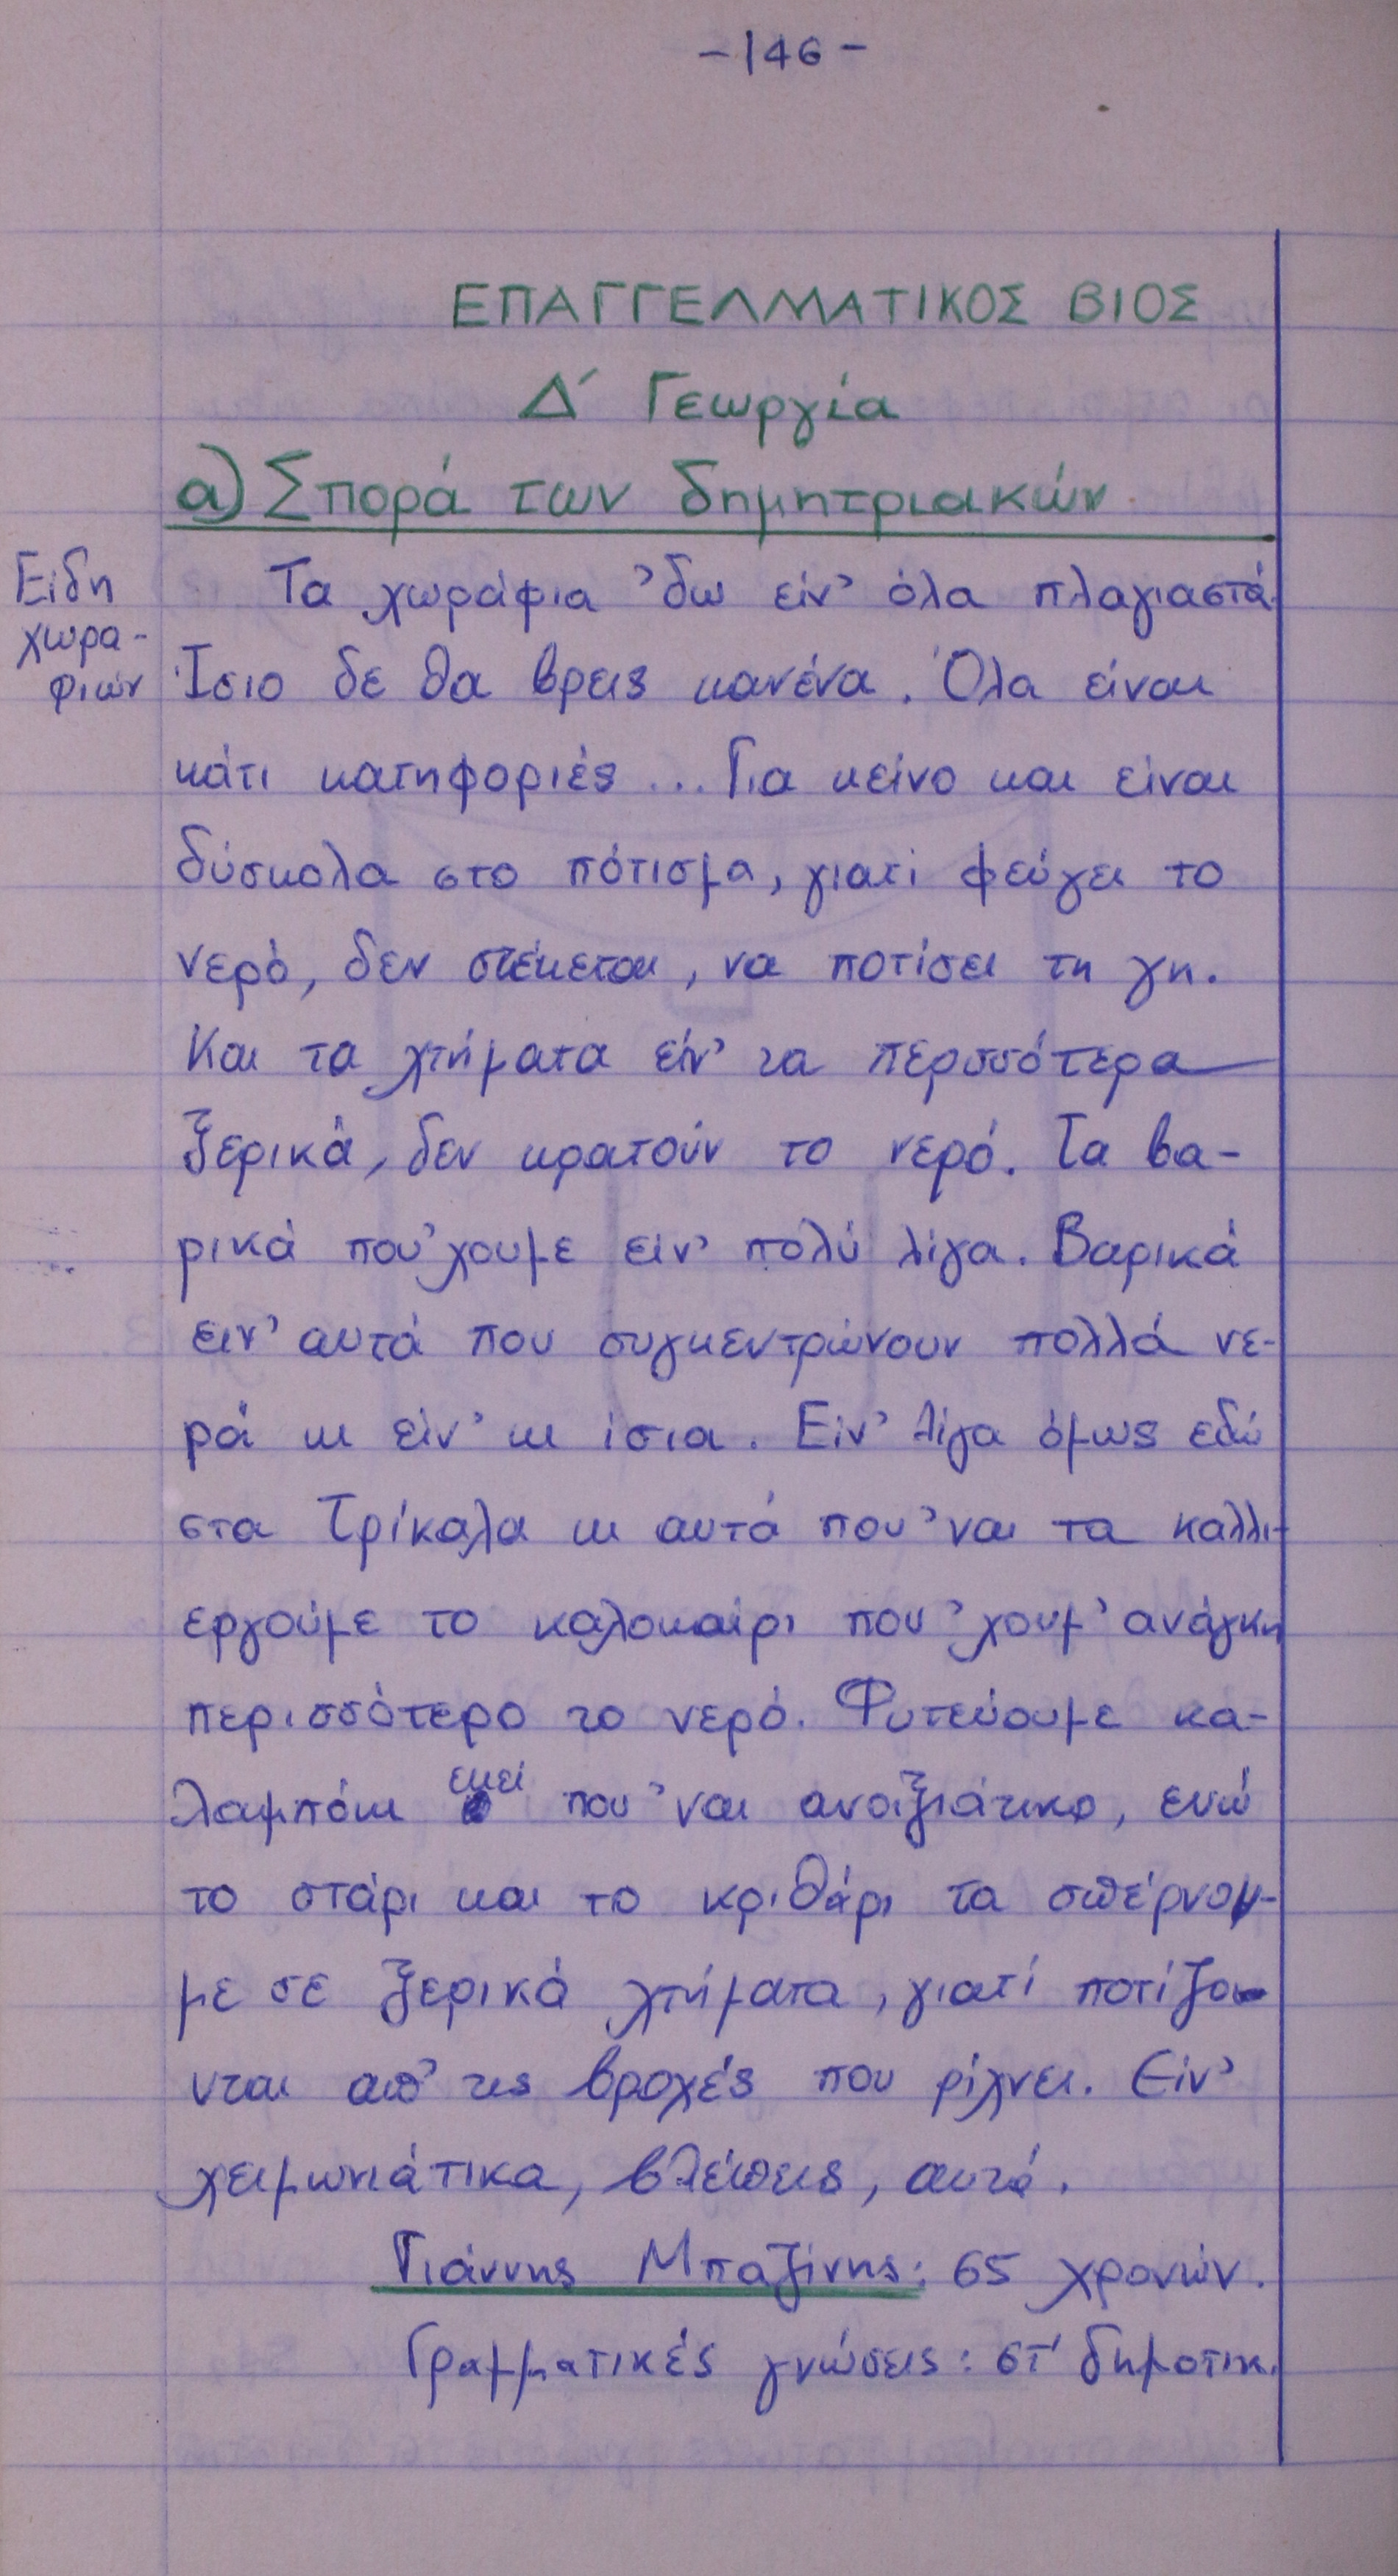 -146-
ΕΠΑΓΓΕΛΜΑΤΙΚΟΣ ΒΙΟΣ
Δ΄ Γεωργία
α) Σπορά των δημητριακών
Είδη
χωρα-
φιών
Τα χωράφια 'δω είν' όλα πλαγιαστά.
Ίσιο δε θα βρεις κανένα. Όλα είναι
κάτι κατηφοριές ... Για κείνο και είναι
δύσκολα στο πότισμα, γιατί φεύγει το
νερό, δεν στέκεται, να ποτίσει τη γη.
Και τα χτήματα είν' τα περσσότερα
ξερικά, δεν κρατούν το νερό. Τα βα-
ρικά που 'χουμε είν' πολύ λίγα. Βαρικά
ειν' αυτά που συγκεντρώνουν πολλά νε-
ρά κι είν' κι ίσια. Είν' λίγα όμως εδώ
στα Τρίκαλα κι αυτά που 'ναι τα καλλι-
εργούμε το καλοκαίρι που 'χουμ' ανάγκη
περισσότερο το νερό. Φυτεύουμε κα-
λαμπόκι εκεί που 'ναι ανοιξιάτικο, ενώ
το στάρι και το κριθάρι τα σπέρνου-
με σε ξερικά χτήματα, γιατί ποτίζο-
νται απ' τις βροχές που ρίχνει. Είν'
χειμωνιάτικα, βλέπεις, αυτά.
Γιάννης Μπαζίνης: 65 χρονών.
Γραμματικές γνώσεις: στ' δημοτικ.